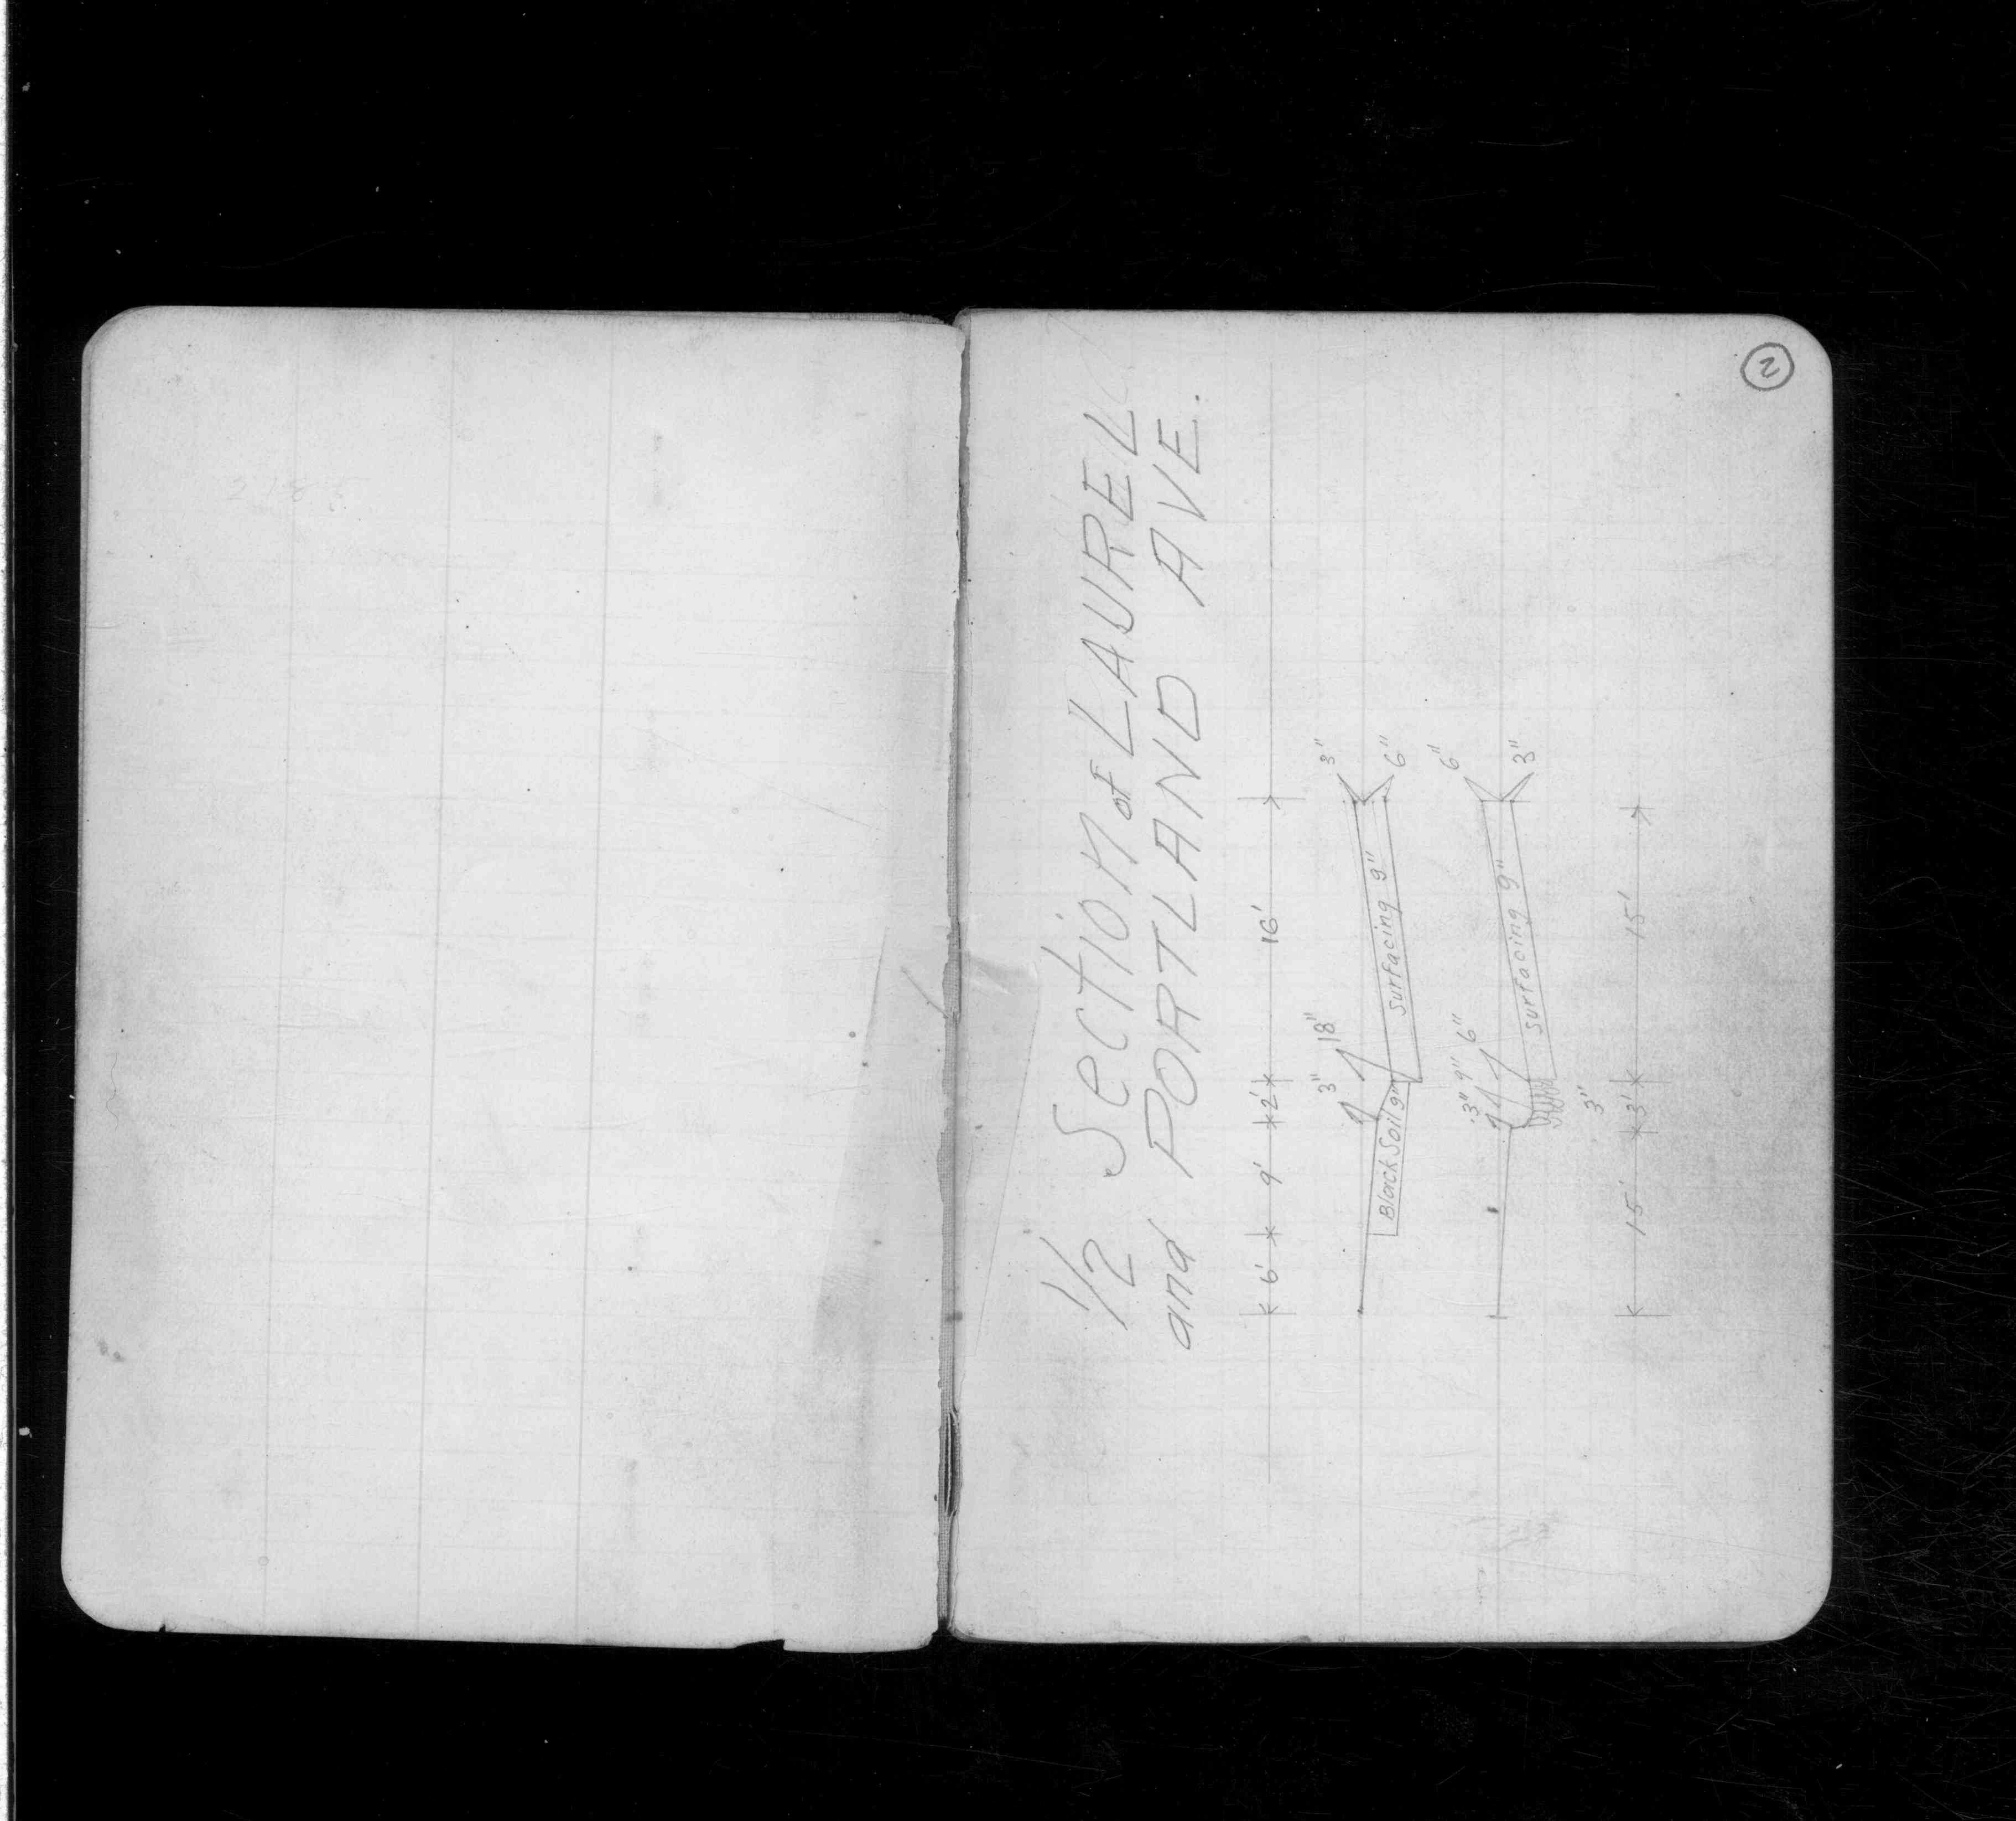 2
1/2 Section of LAUREL
and PORTLAND AVE.
6' 9' 2' 16'
3" 18" 3"
Black Soil 9" Surfacing 9" 6"
3" 9" 6" 6"
Surfacing 9" 3"
3"
15' 3' 15'